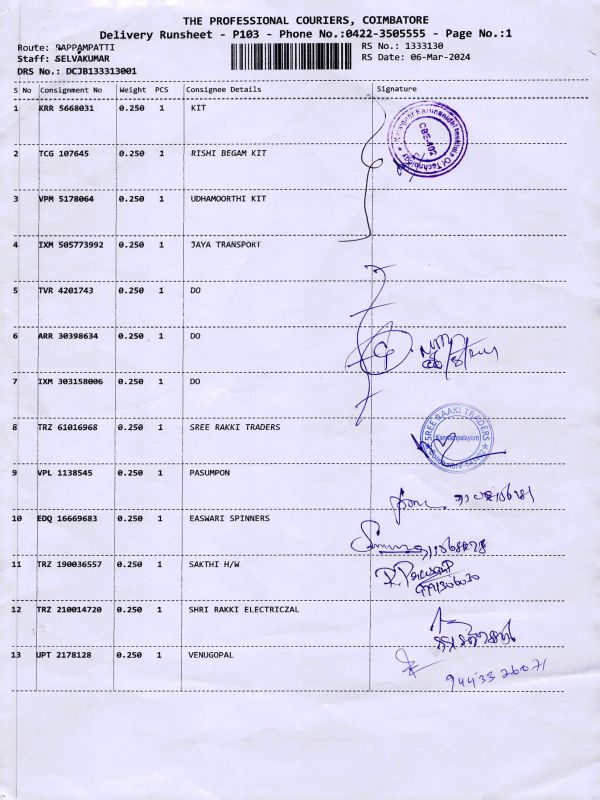 THE PROFESSIONAL COURIERS, COIMBATORE
Delivery Runsheet - P103 - Phone No.:0422-3505555 - Page No.:1
Route: PAPPAMPATTI RS No.: 1333130
Staff: SELVAKUMAR RS Date: 06-Mar-2024
DRS No.: DCJB133313001
S No Consignment No Weight PCS Consignee Details Signature
1 KRR 5668031 0.250 1 KIT
2 TCG 107645 0.250 1 RISHI BEGAM KIT
3 VPM 5178064 0.250 1 UDHAMOORTHI KIT
4 IXM 505773992 0.250 1 JAYA TRANSPORT
5 TVR 4201743 0.250 1 DO
6 ARR 30398634 0.250 1 DO
7 IXM 303158006 0.250 1 DO
8 TRZ 61016968 0.250 1 SREE RAKKI TRADERS
SREE RAAKI TRADERS
Kannampalayum
9 VPL 1138545 0.250 1 PASUMPON
10 EDQ 16669683 0.250 1 EASWARI SPINNERS
11 TRZ 190036557 0.250 1 SAKTHI H/W
12 TRZ 210014720 0.250 1 SHRI RAKKI ELECTRICZAL
13 UPT 2178128 0.250 1 VENUGOPAL
94433 26071